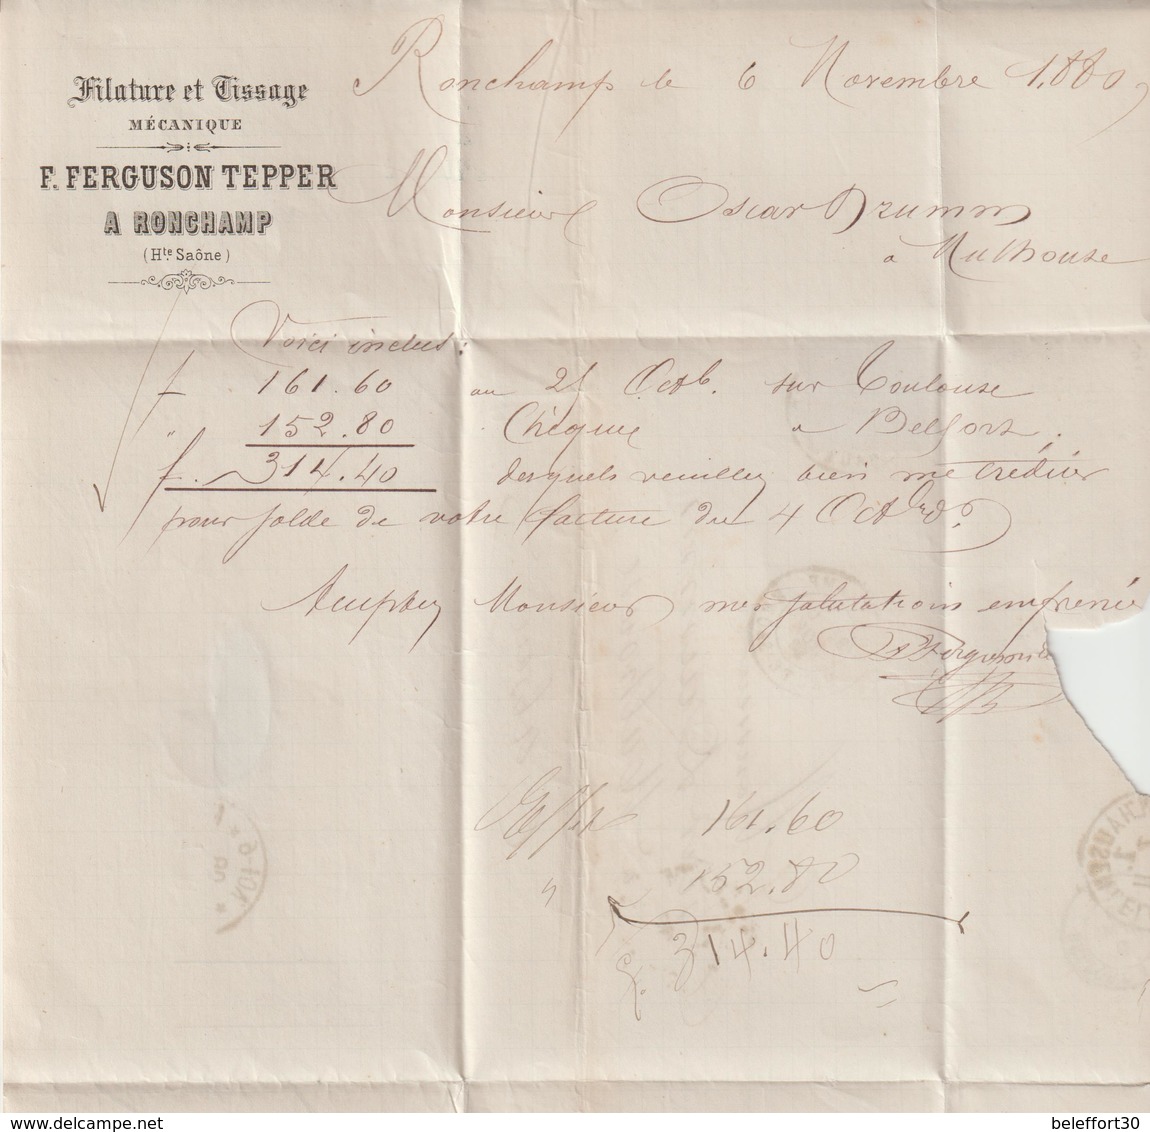 Filature et Tissage
MÉCANIQUE
F. FERGUSON TEPPER
A RONCHAMP
(Hte Saône)
Ronchamp le 6 Novembre 1880
Monsieur Oscar Drumm
a Mulhouse
Voici inclus:
f 161.60 au Octb. sur Toulouse
" 152.80 Chèque " Belfort,
f. 314.40 desquels veuillez bien me créditer
pour solde de votre facture du 4 Octbre
Monsieur mes salutations empressées
Effet 161.60
" 152.80
f. 314.40
beleffort30